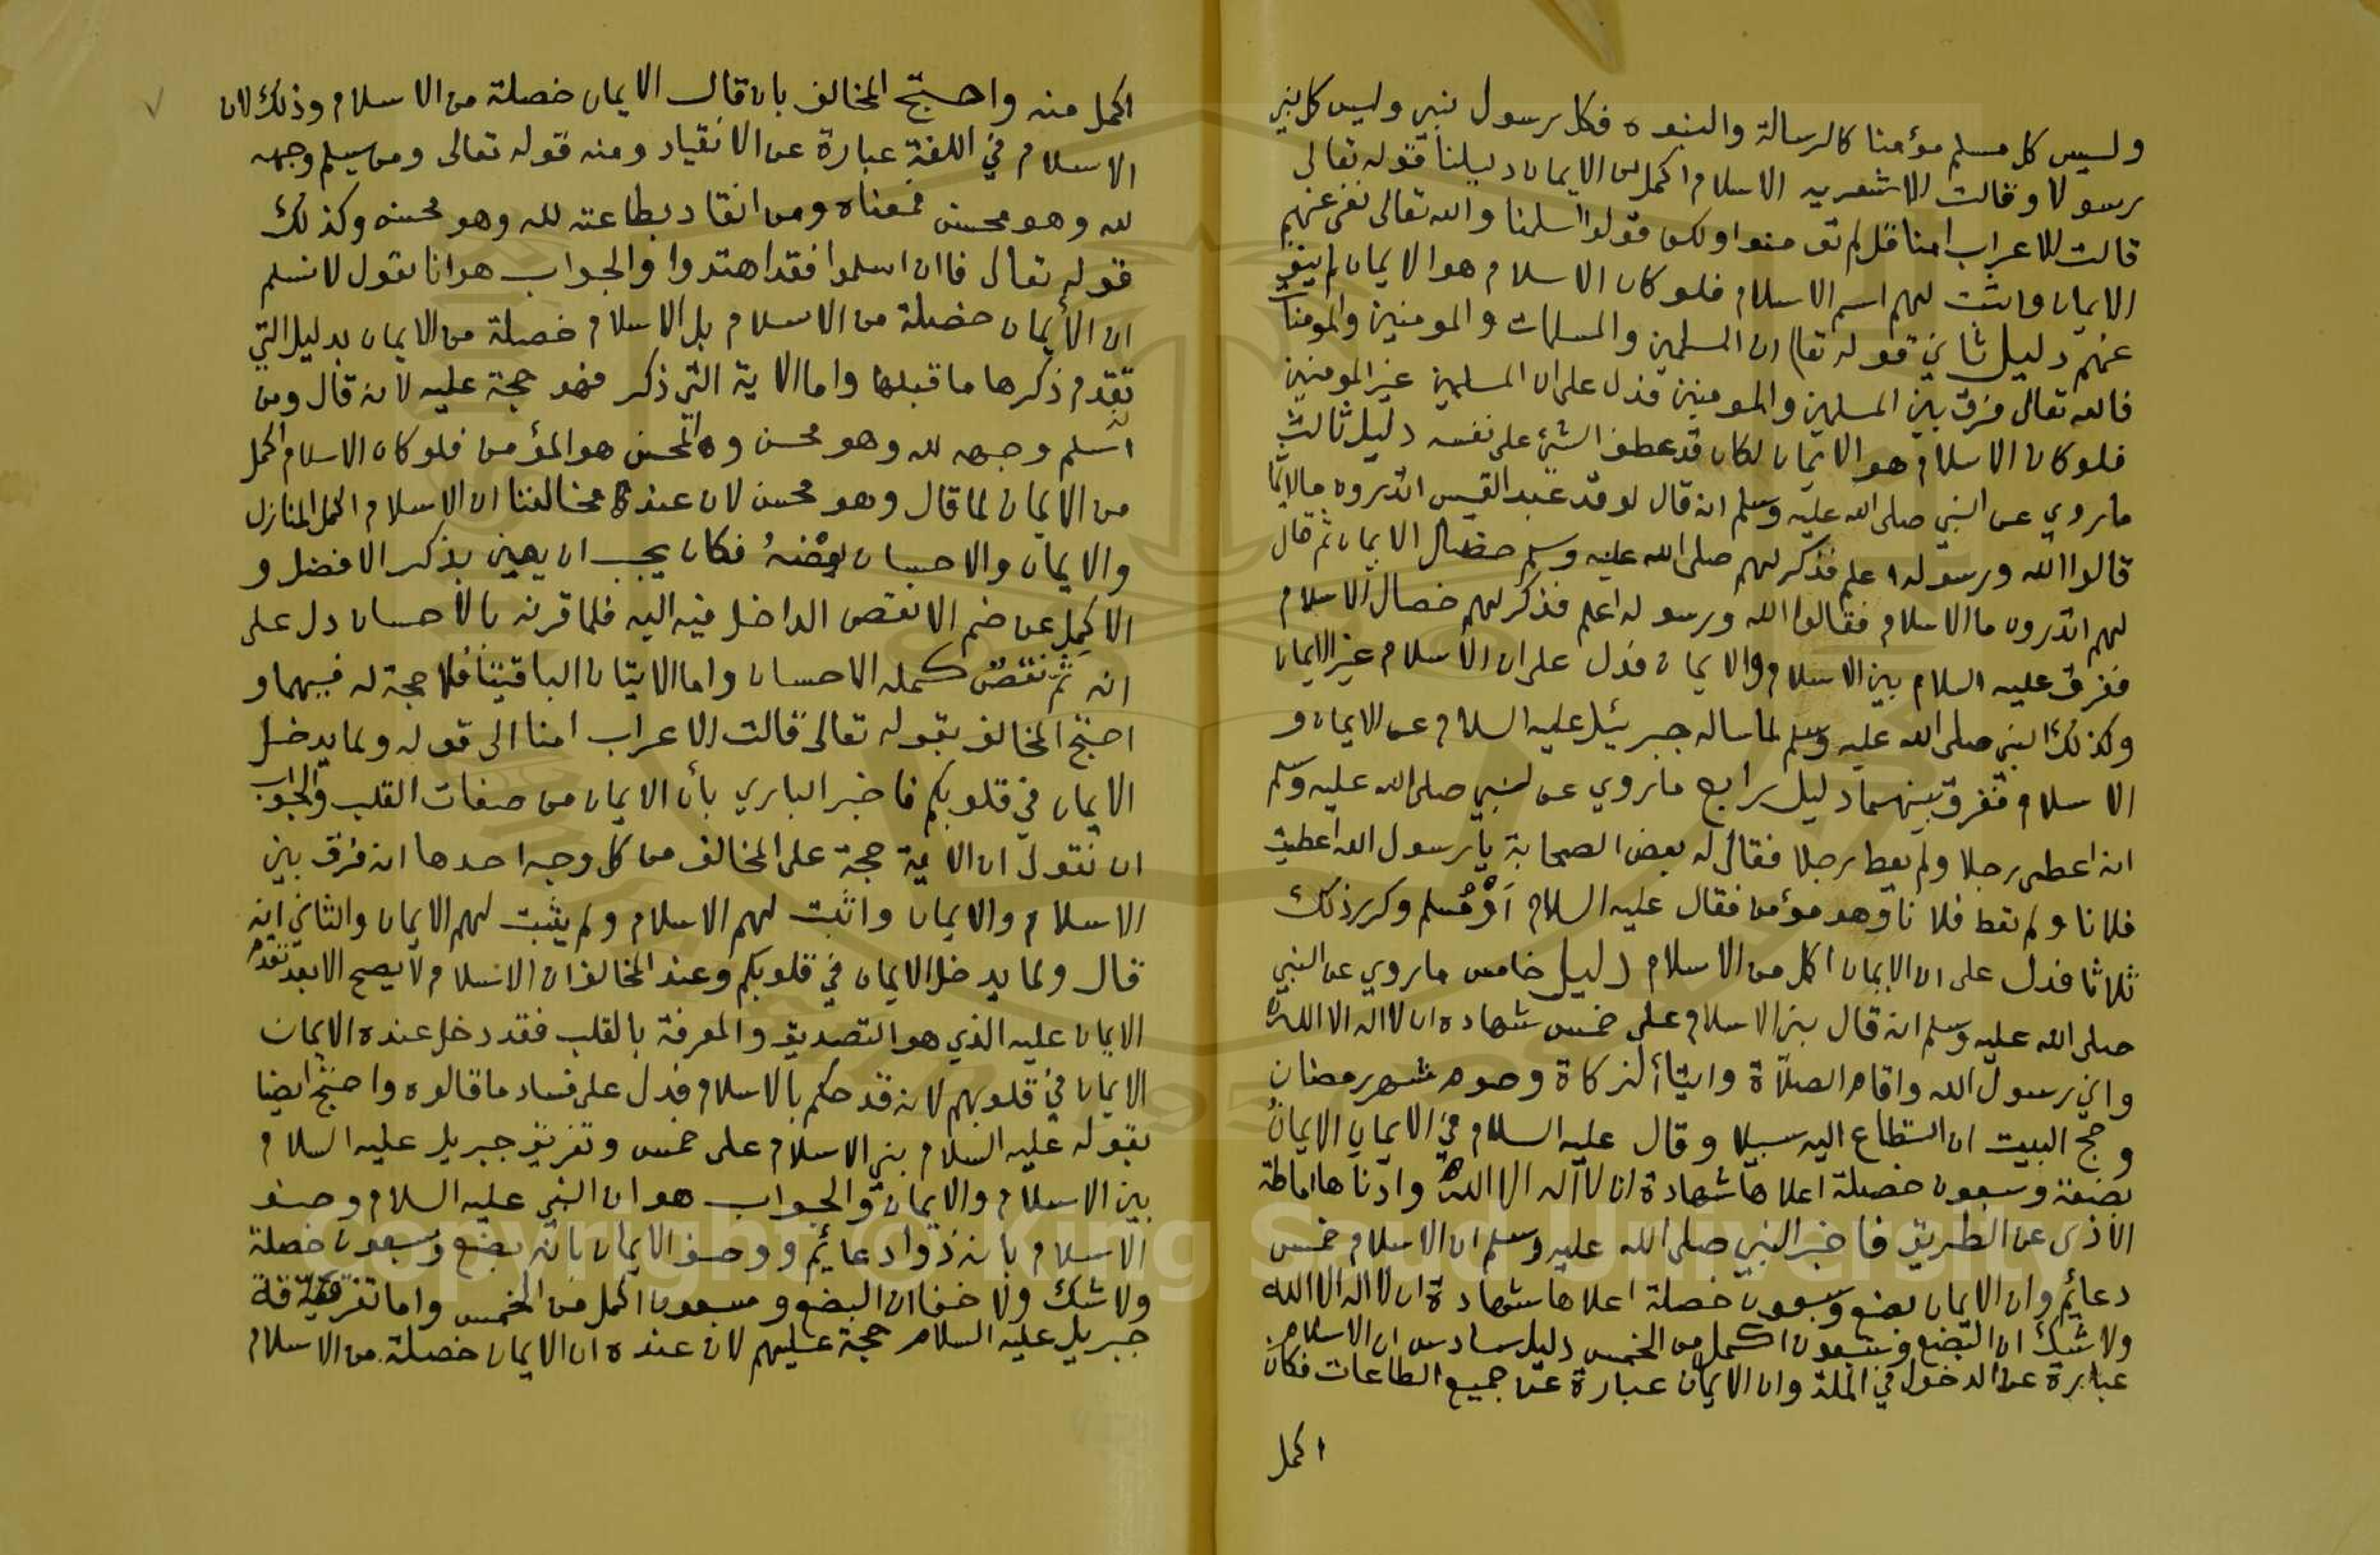 وليس كل مسلم مؤمنا كالرسالة والنبوه فكل رسول نبي وليس كل نبي
رسولا وقالت الاشعريه الاسلام اكمل من الايمان دليلنا قوله تعالى
قالت الاعراب امنا قل لم تؤمنوا ولكن قولوا اسلمنا والله تعالى نفى عنهم
الايمان واثبت لهم اسم الاسلام فلو كان الاسلام هو الايمان لم ينف
عنهم دليل ثاني قوله تعالى ان المسلمين والمسلمات والمومنين والمومنات
فالله تعالى فرق بين المسلمين والمومنين فدل على ان المسلمين غير المومنين
فلو كان الاسلام هو الايمان لكان قد عطف الشئ على نفسه دليل ثالث
ما روي عن النبي صلى الله عليه وسلم انه قال لوفد عبد القيس اتدرون ما الايمان
قالوا الله ورسوله اعلم فذكر لهم صلى الله عليه وسلم خصال الايمان ثم قال
لهم اتدرون ما الاسلام فقالوا الله ورسوله اعلم فذكر لهم خصال الاسلام
ففرق عليه السلام بين الاسلام والايمان فدل على ان الاسلام غير الايمان
وكذلك النبي صلى الله عليه وسلم لما ساله جبريئل عليه السلام عن الايمان و
الاسلام ففرق بينهما دليل رابع ما روي عن النبي صلى الله عليه وسلم
انه اعطى رجلا ولم يعط رجلا فقال له بعض الصحابة يا رسول الله اعطيت
فلانا ولم تعط فلانا وهو مؤمن فقال عليه السلام أوْ مُسلم وكرر ذلك
ثلاثا فدل على ان الايمان اكمل من الاسلام دليل خامس ما روي عن النبي
صلى الله عليه وسلم انه قال بني الاسلام على خمس شهاده ان لا اله الا الله
واني رسول الله واقام الصلاة وايتاء الزكاة وصوم شهر رمضان
وحج البيت ان استطاع اليه سبيلا وقال عليه السلام في الايمان الايمان
بضعة وسبعون خصلة اعلاها شهادة ان لا اله الا الله وادناها اماطة
الاذى عن الطريق فاخبر النبي صلى الله عليه وسلم ان الاسلام خمس
دعائم وان الايمان بضع وسبعون خصلة اعلاها شهادة ان لا اله الا الله
ولا شك ان البضع وسبعون اكمل من الخمس دليل سادس ان الاسلام
عبارة عن الدخول في الملة وان الايمان عبارة عن جميع الطاعات فكان
اكمل
اكمل منه واحتج المخالف بان قال الايمان خصلة من الاسلام وذلك لان
الاسلام في اللغة عبارة عن الانقياد ومنه قوله تعالى ومن يسلم وجهه
لله وهو محسن فمعناه ومن انقاد بطاعته لله وهو محسن وكذلك
قوله تعالى فاان اسلموا فقد اهتدوا والجواب هو انا نقول لا نسلم
ان الأيمان خصلة من الاسلام بل الاسلام خصلة من الايمان بدليل التي
تقدم ذكرها ما قبلها واما الاية التي ذكر فهو حجة عليه لانه قال ومن
اسلم وجهه لله وهو محسن والمحسن هو المؤمن فلو كان الاسلام اكمل
من الايمان لما قال وهو محسن لان عند مخالفنا ان الاسلام اكمل المنازل
والايمان والاحسان بعْضهُ فكان يجب ان يعين بذكر الافضل و
الاكمل عن ضم الانقص الداخل فيه اليه فلما قرنه بالاحسان دل على
انه ثم نقصٌ كمله الاحسان واما الايتان الباقيتان فلا حجة له فيهما و
احتج المخالف بقوله تعالى قالت الاعراب امنا الى قوله ولما يدخل
الايمان في قلوبكم فاخبر الباري بأن الايمان من صفات القلب والجواب
ان نقول ان الاية حجة على المخالف من كل وجه احدها انه فرق بين
الاسلام والايمان واثبت لهم الاسلام ولم يثبت لهم الايمان والثاني انه
قال ولما يدخل الايمان في قلوبكم وعند المخالف ان الاسلام لا يصح الا بعد تقدم
الايمان عليه الذي هو التصديق والمعرفة بالقلب فقد دخل عنده الايمان
الايمان في قلوبهم لانه قد حكم بالاسلام فدل على فساد ما قالوه واحتج ايضا
بقوله عليه السلام بني الاسلام على خمس وتفريق جبريل عليه السلام
بين الاسلام والايمان والجواب هو ان النبي عليه السلام وصف
الاسلام بانه ذوا دعائم ووصف الايمان بانه بضع وسبعون خصلة
ولا شك ولا خفا ان البضع وسبعون اكمل من الخمس واما تفرقة
جبريل عليه السلام حجة عليهم لان عنده ان الايمان خصلة من الاسلام
Copyright © King Saud University
1957